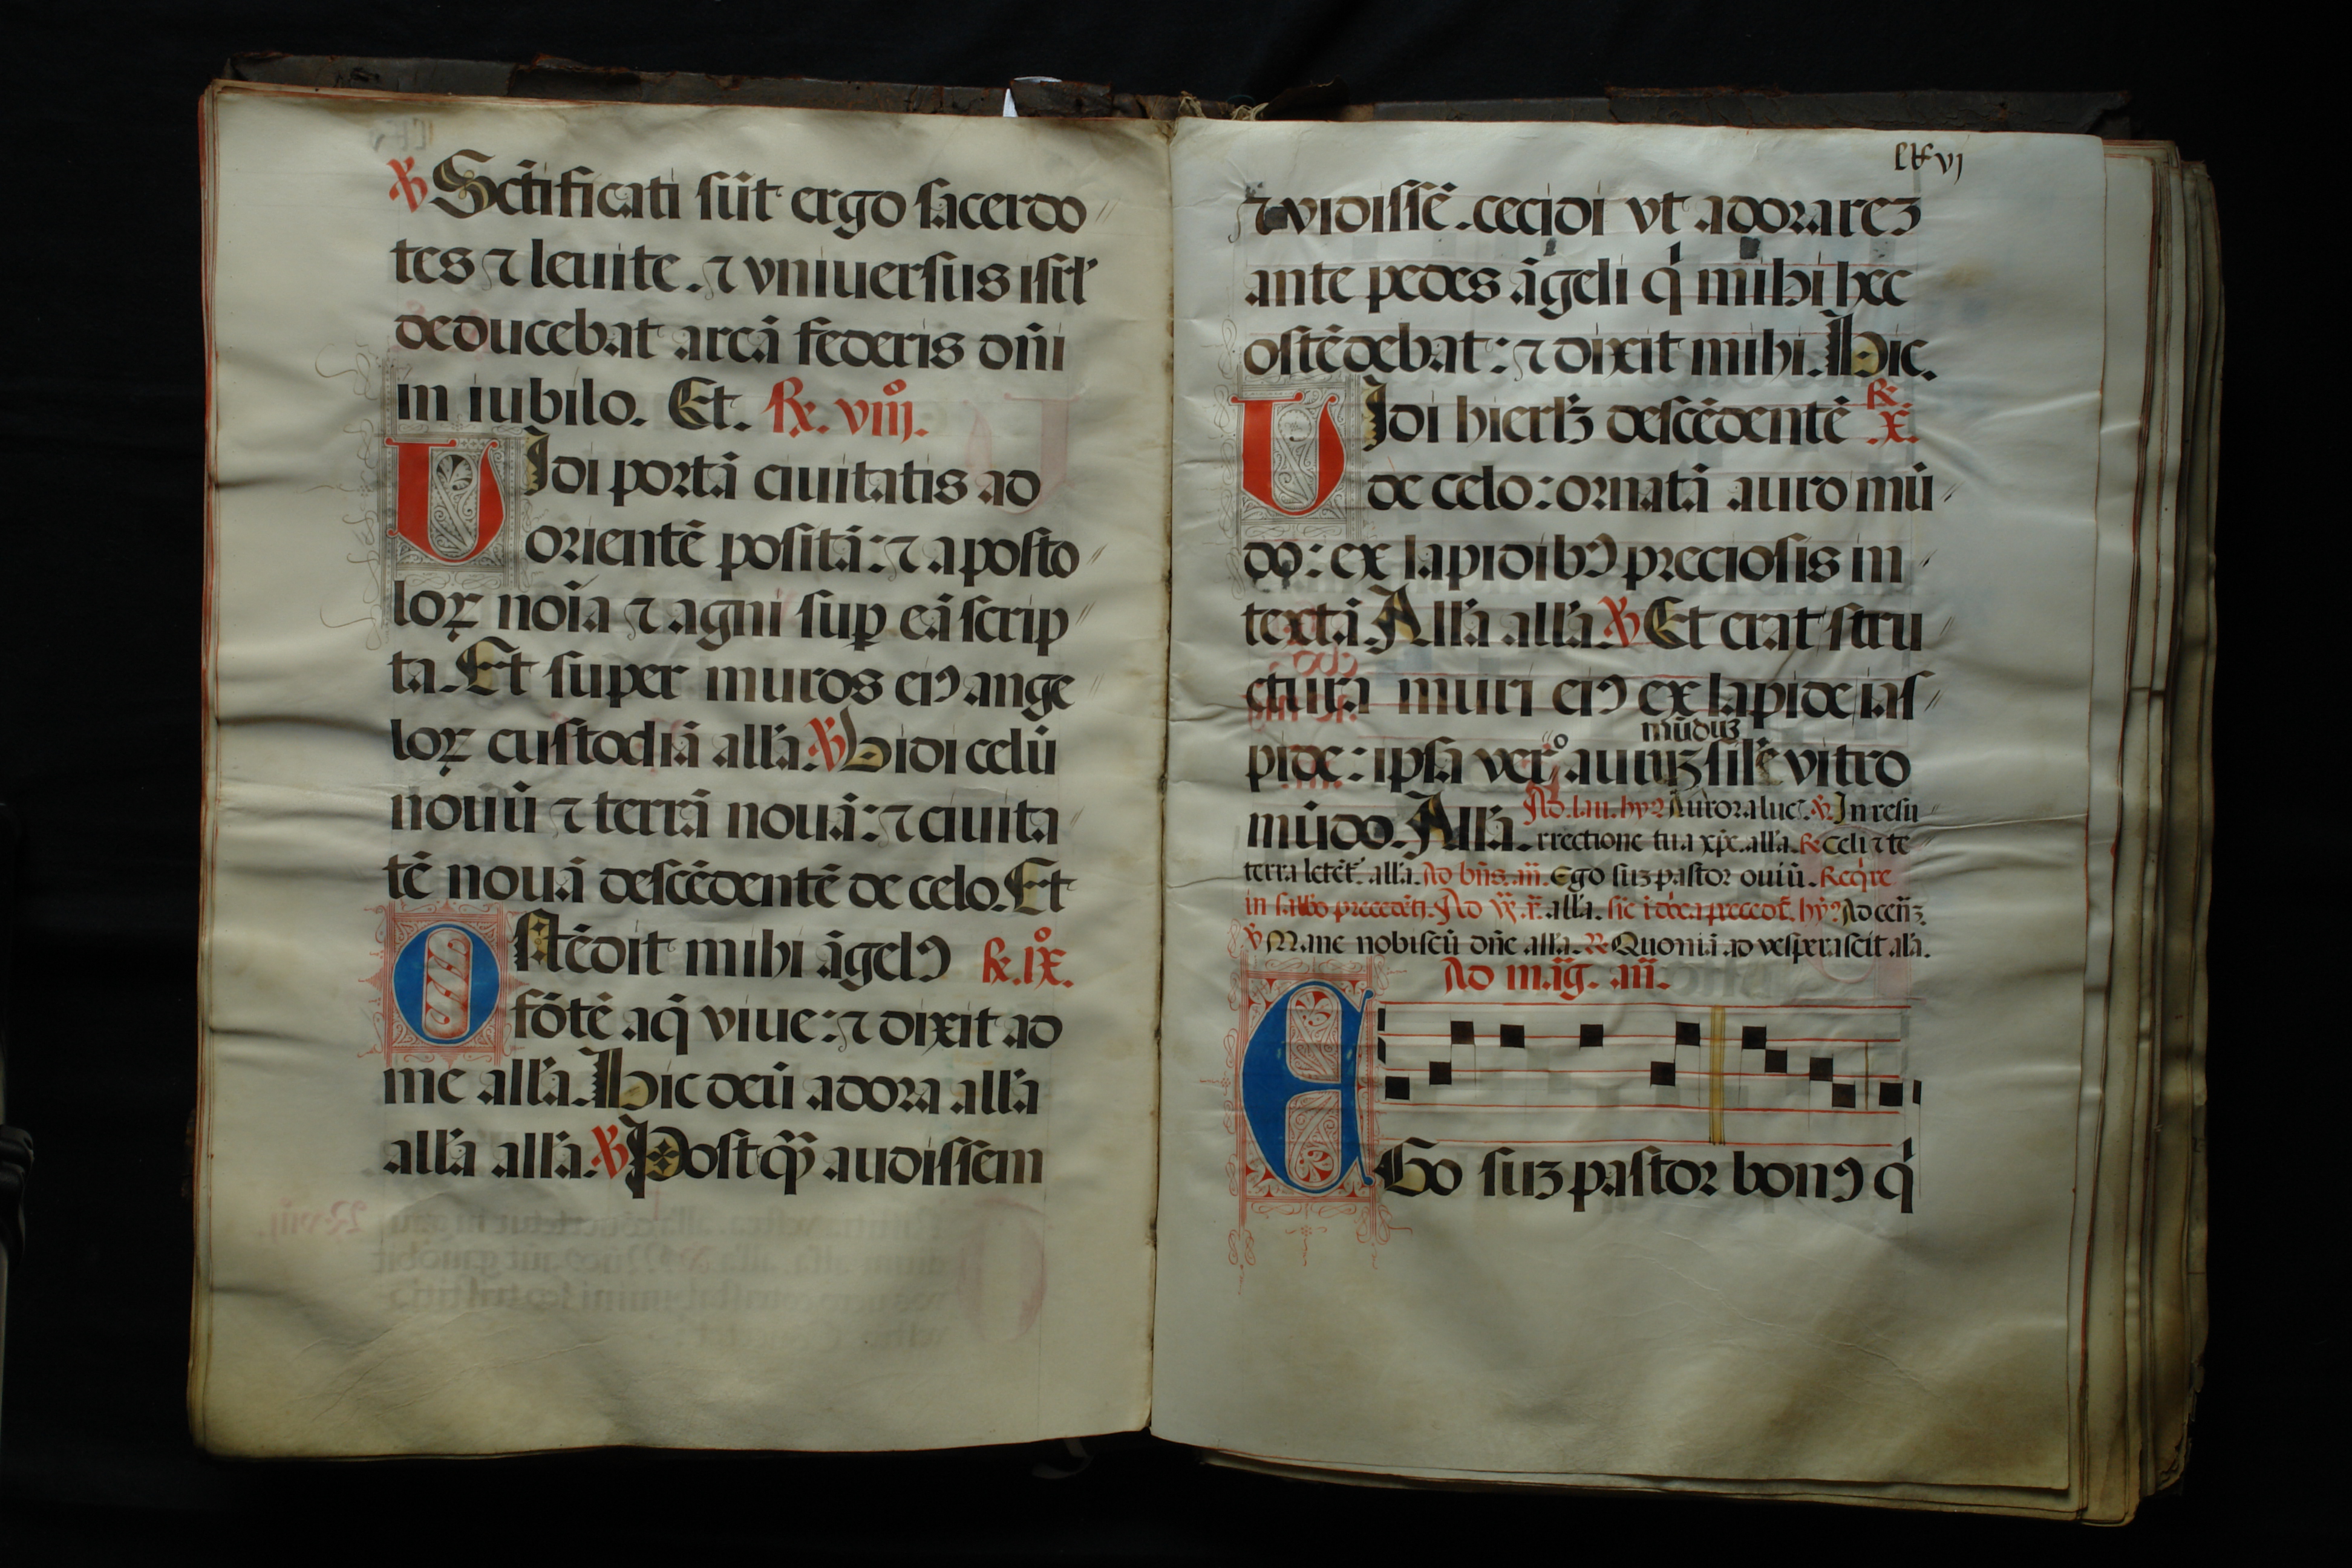 ℣ Sctificati sūt ergo sacerdo
tes ⁊ leuite. ⁊ vniuersus isrl'
deducebat arcā federis dn̄i
in iubilo. Et. ℞. viiȷ.
VIdi portā ciuitatis ad
orientē positā: ⁊ aposto
loꝝ noīa ⁊ agni suꝑ eā scrip
ta. Et super muros eiꝰ ange
loꝝ custodiā all'a. ℣ Vidi celū
nouū ⁊ terrā nouā: ⁊ ciuita
tē nouā descēdentē de celo. Et
OStēdit mihi āgelꝰ ℞. ix.
fōtē aq̄ viue: ⁊ dixit ad
me all'a. Hic deū adora all'a
all'a all'a. ℣ Postq̄ȝ audissem
lxvj
⁊ vidissē. cecidi vt adorareȝ
ante pedes āgeli q' mihi hec
ostēdebat: ⁊ dixit mihi. Hic.
VIdi hierlȝ descēdentē ℞ .x.
de celo: ornatā auro mū
do: ex lapidibꝰ preciosis in
textā. All'a all'a. ℣ Et erat stru
ctura muri eiꝰ ex lapide ias
munduȝ
pide: ipsa vero auruȝ sil'e vitro
mūdo. All'a. Ad. lau. hyꝰ. Aurora luc. ℣. In resu
rrectione tua xp̄e. all'a. ℞ celi ⁊ te
terra letēt. all'a. Ad bn̄s. an̄. Ego suȝ pastor ouiū. Reqre
℣ Mane nobiscū dn̄e all'a. ℞ Quoniā aduesperascit al'a.
Ad mag. an̄.
EGo suȝ pastor bonꝰ q'